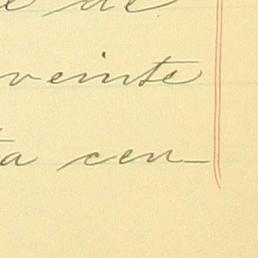 e de
veinte
ta cen-